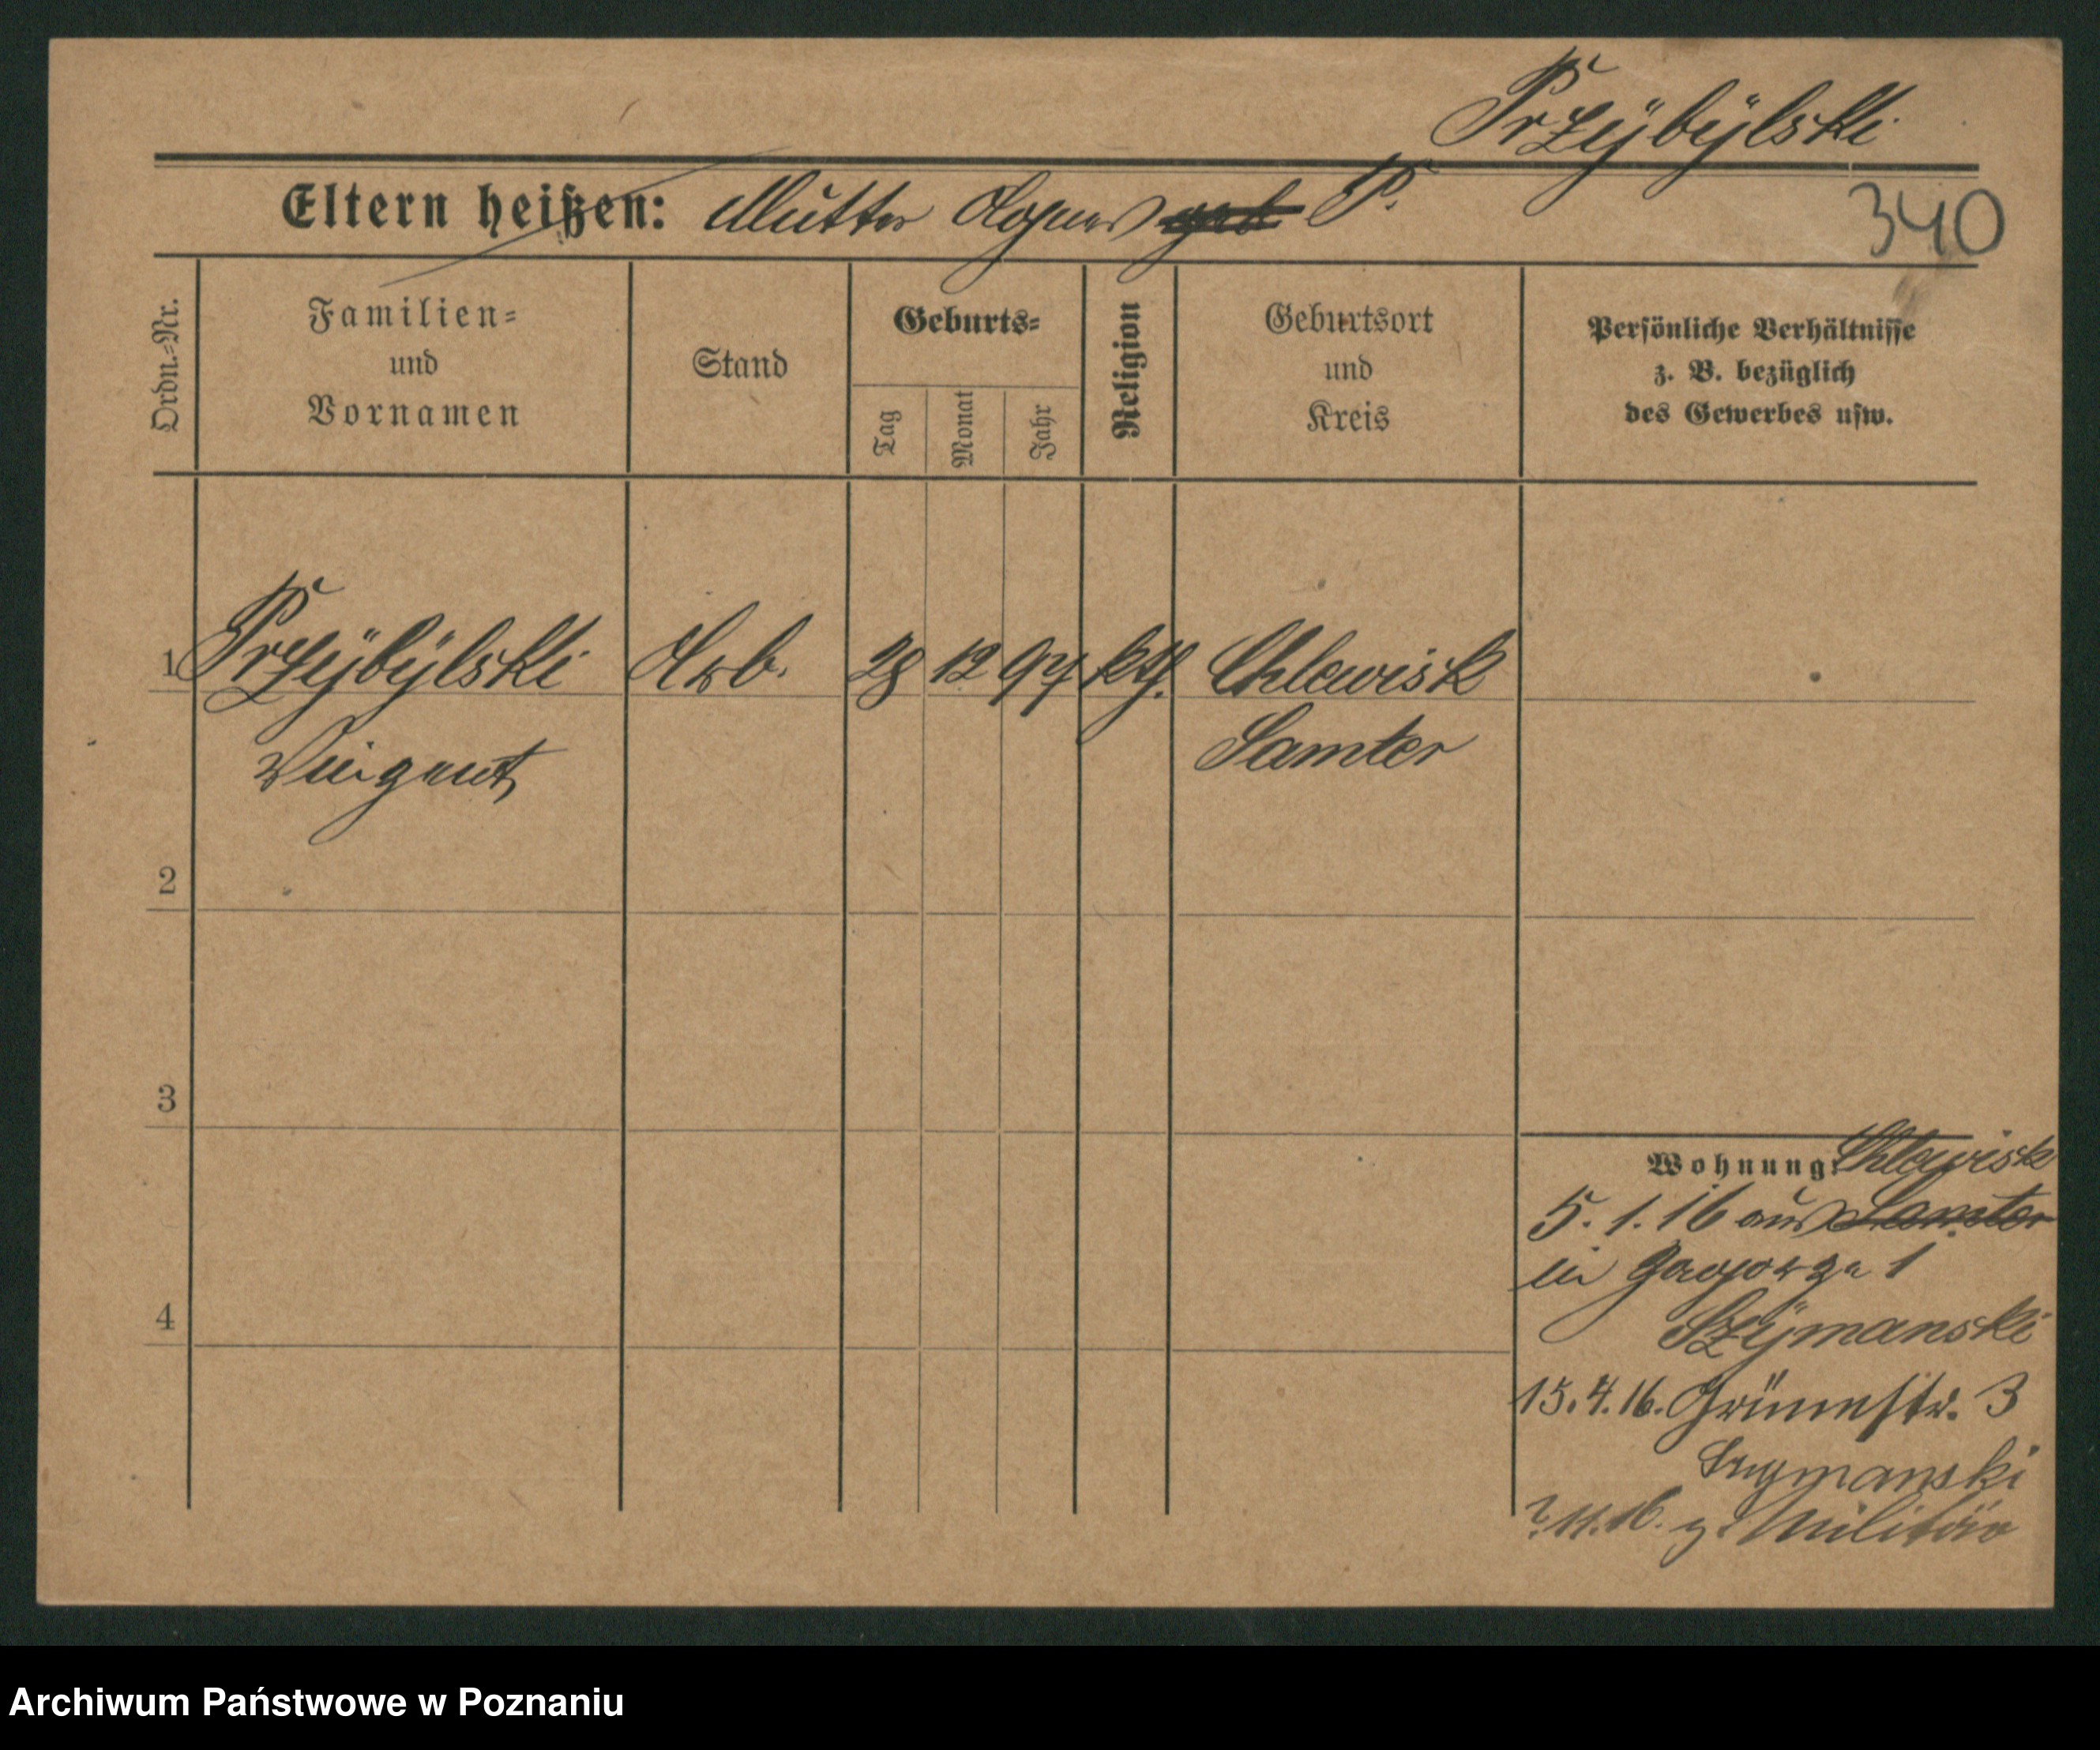 Przÿbÿlski
Eltern heißen: Mutter Agnes geb P.
340
Ordn.=Nr.
Familien=
und
Vornamen
Stand
Geburts=
Tag
Monat
Jahr
Religion
Geburtsort
und
Kreis
Persönliche Verhältnisse
z. B. bezüglich
des Gewerbes usw.
1 Przÿbÿlski Arb. 28 12 97 kth. Chlewisk
Vinzent Samter
2
3
4
Wohnung: Chlewisk
5. 1. 16 aus Samter
in 1
Szÿmanski
15. 4. 16. Grünestr. 3
Szymanski
11. 16. z. Militär
Archiwum Państwowe w Poznaniu